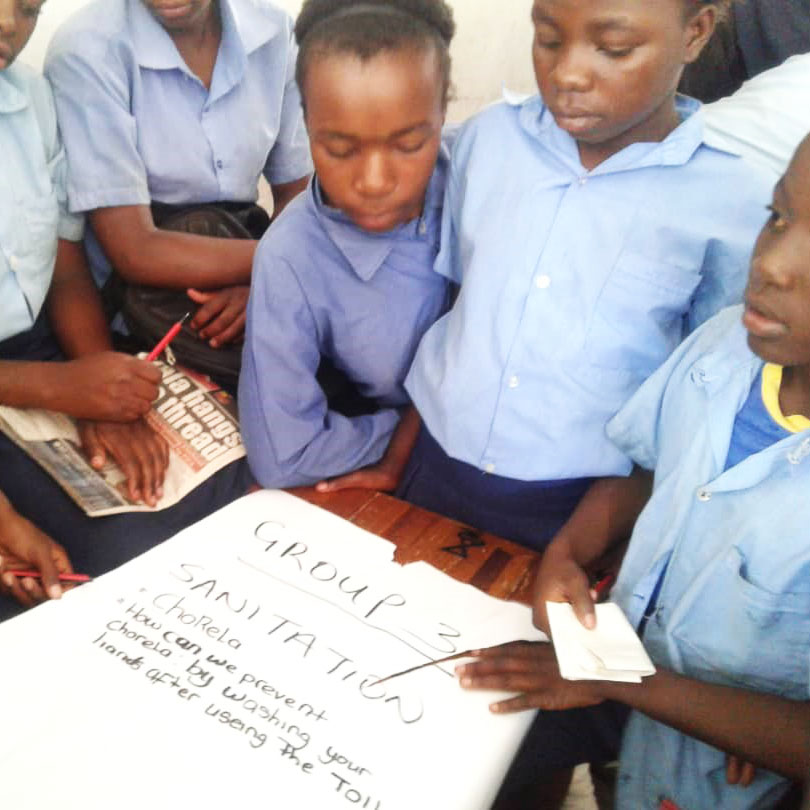 hangs
thread
GROUP 3
SANITATION
• ChoRela
• How can we prevent
chorela by washing your
hands after useing The Toil